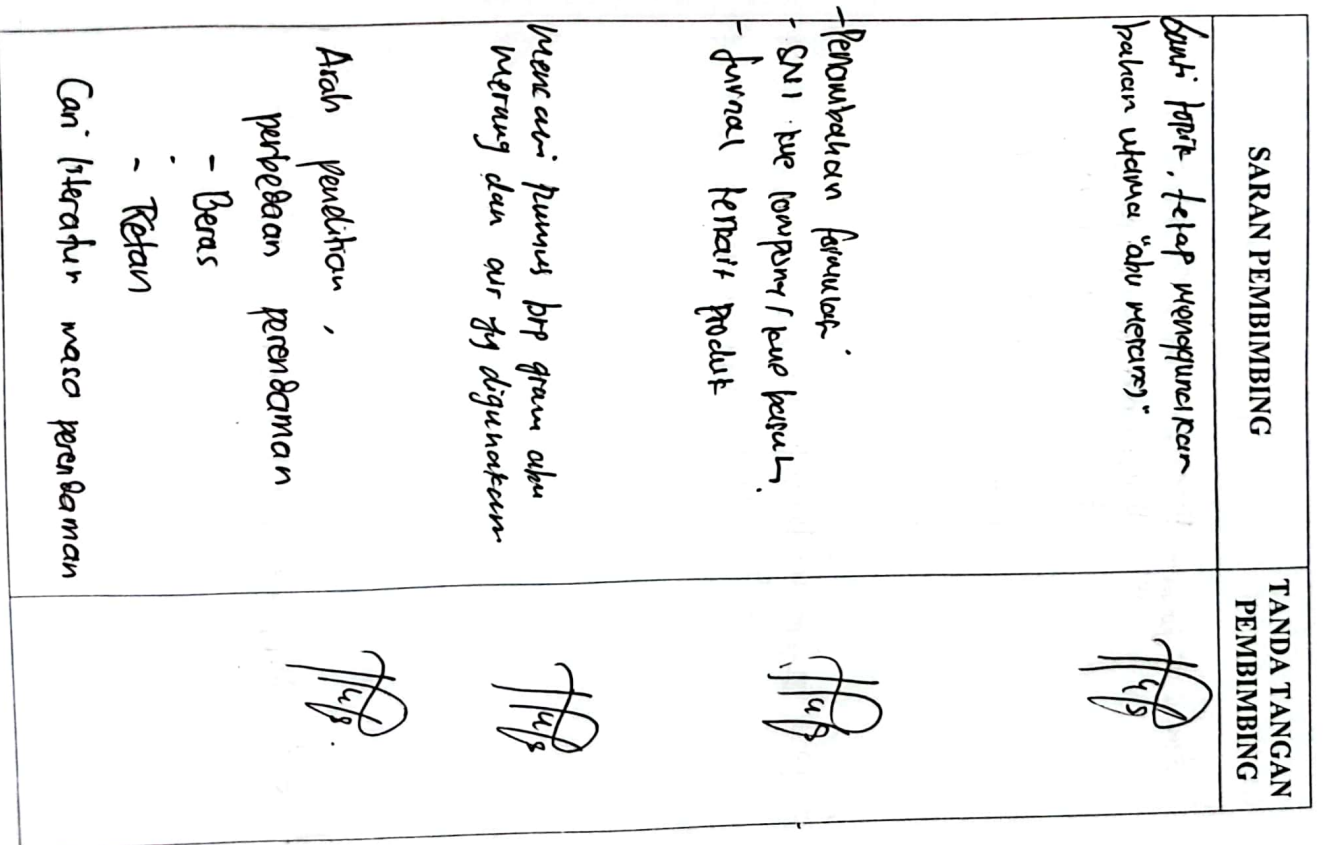 SARAN PEMBIMBING
TANDA TANGAN
PEMBIMBING
Ganti topik, tetap menggunakan
bahan utama "abu merang"
- Penambahan formulasi
- SNI kue lompong / kue basah.
- Jurnal terkait produk
Mencari rumus brp gram abu
merang dan air yg digunakan
Arah penelitian,
perbedaan perendaman
- Beras
- Ketan
Cari literatur masa perendaman